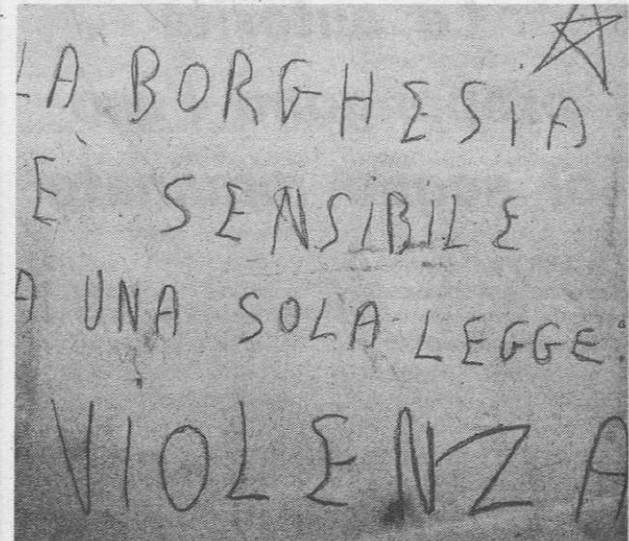 LA BORGHESIA
È SENSIBILE
A UNA SOLA LEGGE:
VIOLENZA